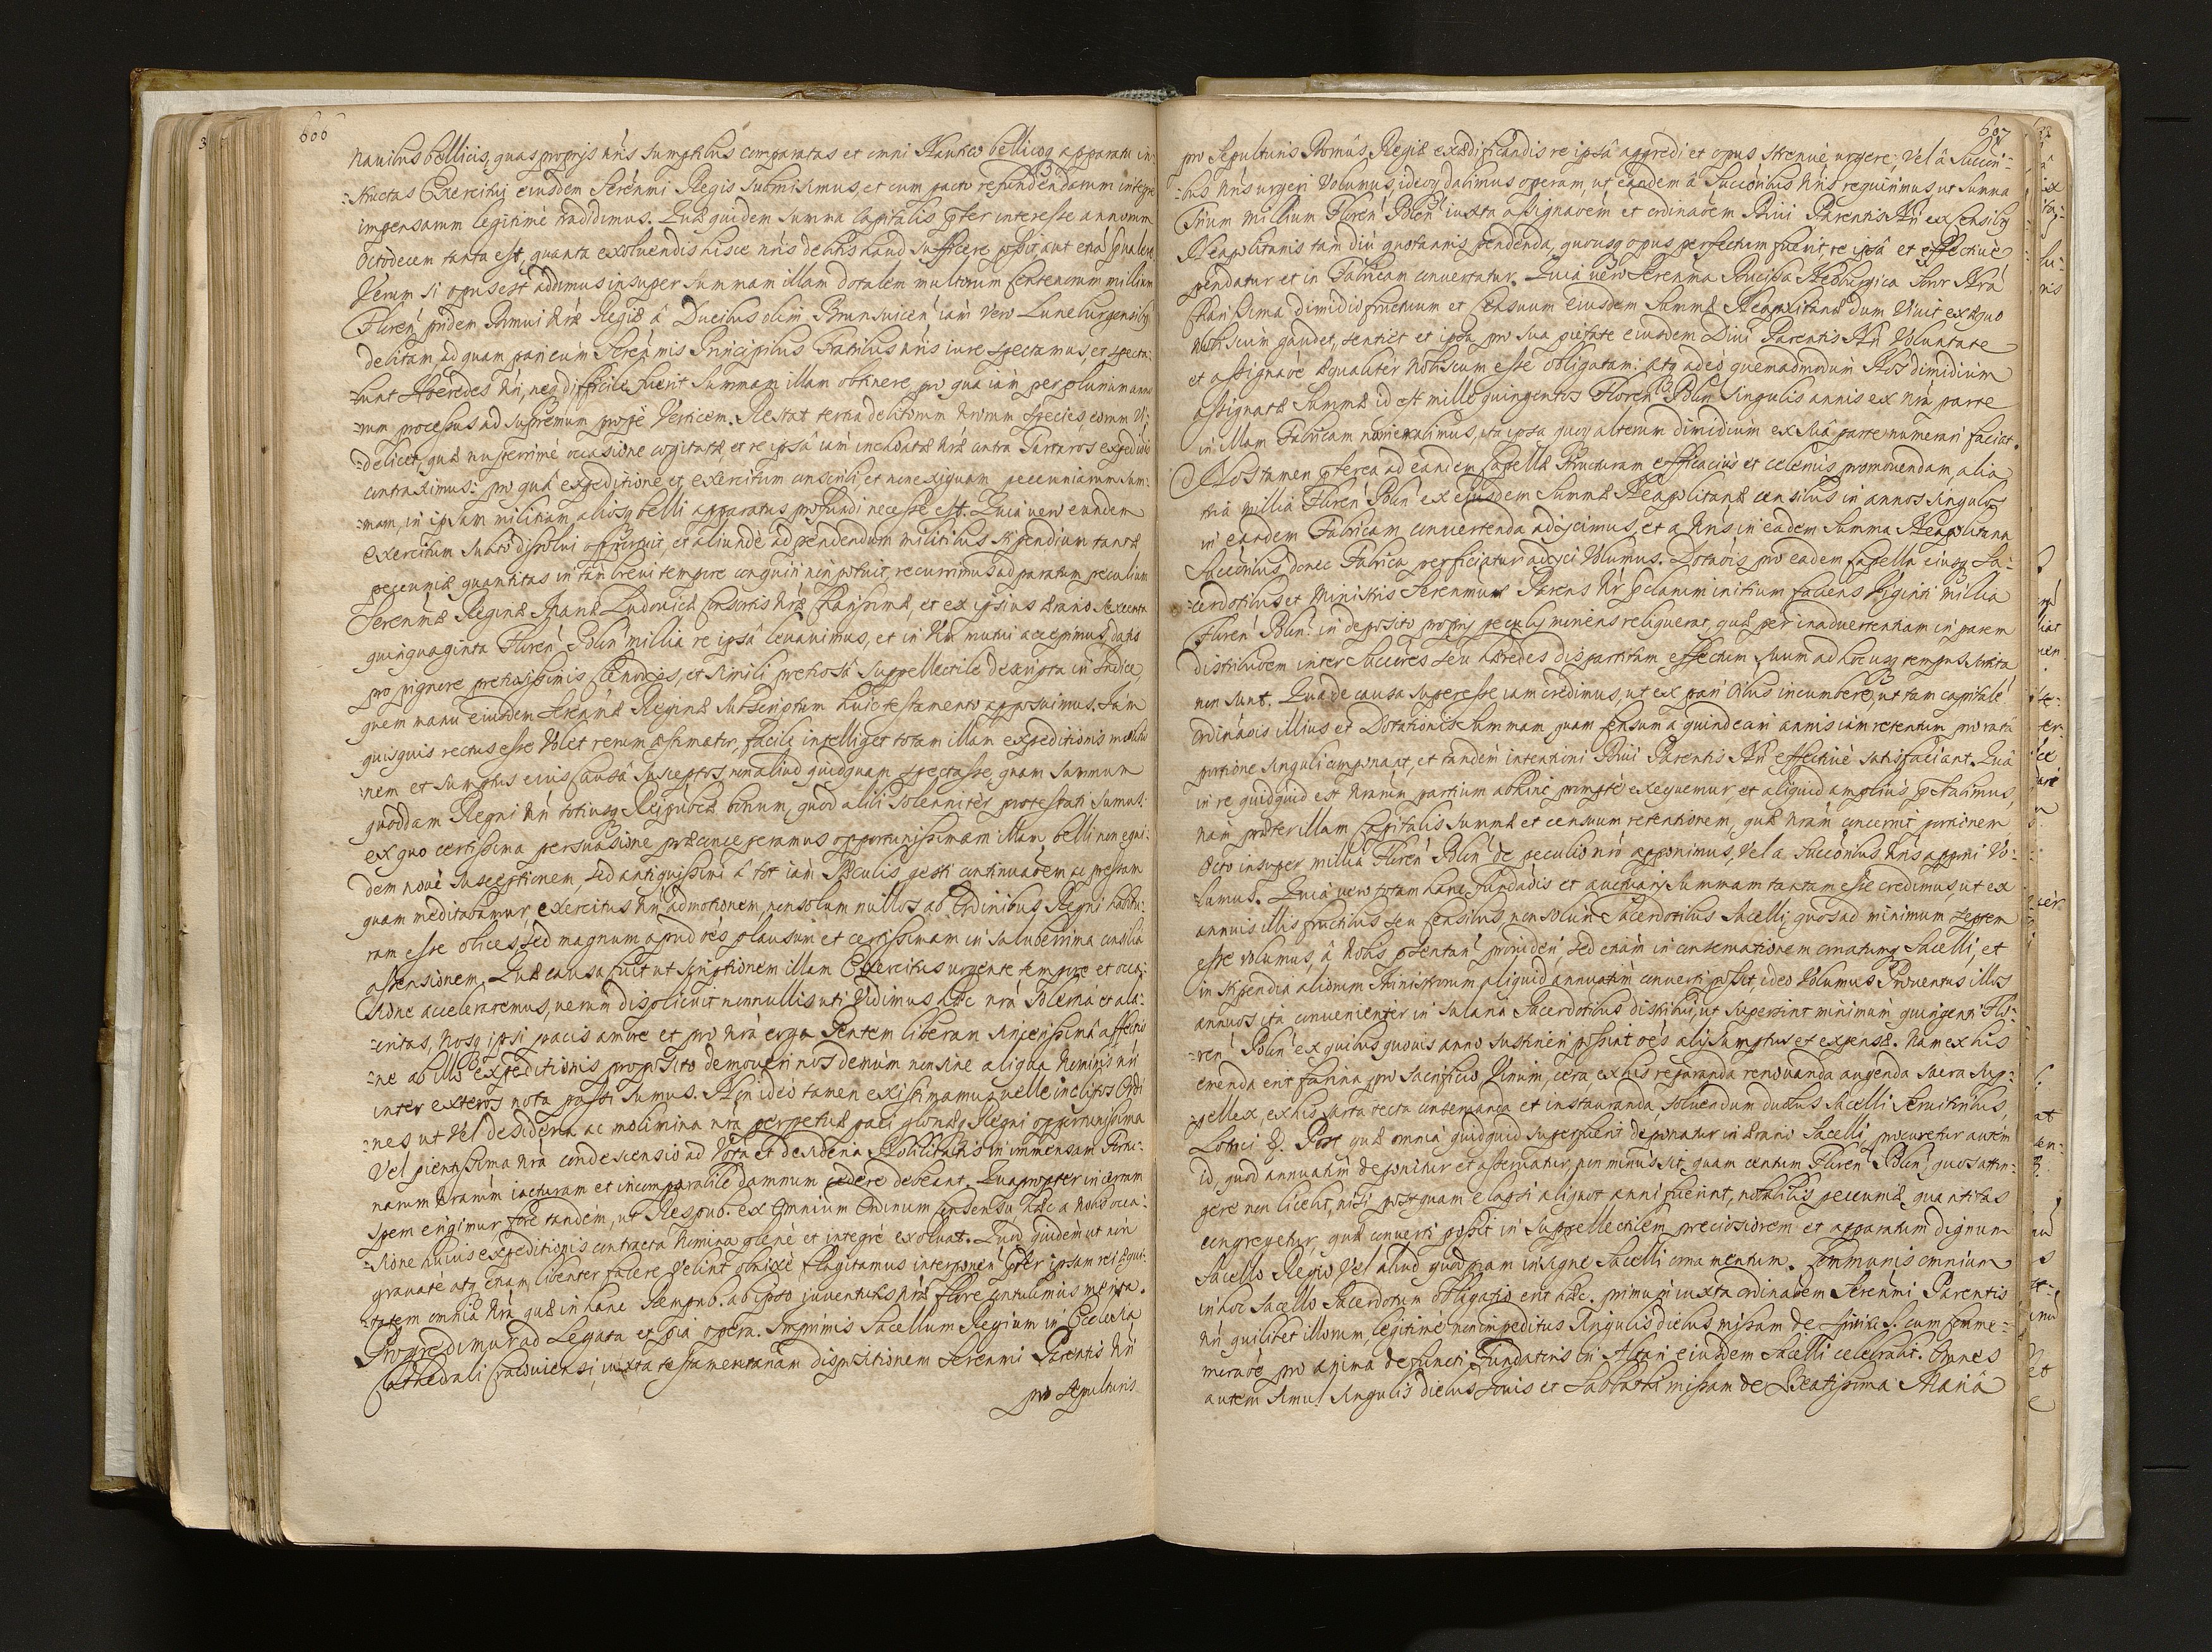 606
navibus bellicis, quas proprijs nris sumptibus comparatas et omni Nautico bellicoq apparatu in-
-structas Exercitui eiusdem Serenmi Regis submisimus, et cum pacto refundendarum integre
impensarum legitimè tradidimus. Quæ quidem summa Capitalis pter interesse annorum
octodecem tanta est, quanta exoluendis hisce nris debitis haud sufficere possit, aut etiá
Verum si opus est addimus insuper summam illam dotalem multorum Centenorum millium
Floren pridem Domui Nræ Regiæ â Ducibus olim Brunsuicen iam vero Luneburgensibq
debitam, ad quam pari cum Serenmis Principibus Fratribus nris iure spectamus, et specta-
bunt Hæredes nri, neq difficile fuerit summam illam obtinere, pro qua iam per plurimum anno
-rum processus ad supremum propè Verticem. Restat tertia debitorum nrorum species, eorum vi-
-delicet, quæ nuperrimè occasione cogitatæ, et re ipsâ iam inchoatæ nræ contra Tartaros expeditiõis
contraximus: pro quâ expeditione et exercitum conscribi, et non exiguam pecuniarum sum-
-mam, in ipsam militiam, aliosq belli apparatus profundi necesse est. Quia vero eundem
exercitum subito dissolui oportuit, et aliundè ad pendendum militibus stipendium tantæ
pecuniæ quantitas in tam breui tempore conquiri non potuit, recurrimus ad paratum peculium
Serenmæ Reginæ Mariæ Ludouicæ Consortis Nræ Charissimæ, et ex ipsius ærario
quinquaginta Floren Polon millia re ipsâ leuauimus, et in Vim mutui accepimus, datis
pro pignore pretiosissimis Clenodijs, et simili pretiosâ suppellectile descripta in Indice,
quem manu eiusdem Serenmæ Reginæ subscriptum huic testamento apposuimus. Iam
quisquis rectus esse volet rerum æstimator, facilè intelliget totam illam expeditionis molitio
nem et sumptus eius causâ susceptos, non aliud quidquam spectasse, quam summum
quoddam Regni Nri totiusq Reipublicæ bonum, quod alibi solenniter protestati sumus:
ex quo certissima persuasione præconceperamus opportunissimam illam belli non equi-
dem noui susceptionem, sed antiquissimi â tot iam sæculis gesti continuaõem ac prestam
quam meditabamur, exercitus Nri admotionem, non solum nullos ab Ordinibus Regni habitu-
ram esse obices, sed magnum apud oẽs plausum et certissimam in saluberrima consilia
assensionem. Quæ causa fuit ut scriptionem illam Exercitus urgente tempore et occa-
sione acceleraremus, uerum displicuit nonnullis uti vidimus hæc nra solertia et ala-
-critas, nosq ipsi pacis amore et pro nra erga Gentem liberam sincerissimâ affectio
-ne ab illo expeditionis proposito demoueri nos demum non sine aliqua Nominis nri
inter exteros nota passi sumus. Non ideo tamen existimamus uelle inclitos Ordi
-nes ut vel desideria ac molimina nra perpetuæ paci gloriæq Regni opportunissima
Vel pientissima nra condescensio ad Vota et desideria Nobilitatis in immensam Fortu-
narum Nrarum iacturam et incomparabile damnum cedere debeant. Quapropter in certam
spem erigimur fore tandem, ut Respub. ex Omnium Ordinum Consensu hæc a nobis occa-
-sione huius expeditionis contracta Nomina plenè et integrè exoluat. Quod quidem ut non
grauatè atq etiam libenter facere velint obnixè flagitamus interponen pter ipsam rei æqui-
-tatem omnia nra quæ in hanc Rempub. ab ipso iuuentutis nræ flore contulimus merita.
Progredimur ad Legata et pia opera. Imprimis Sacellum Regium in Ecclesia
Cathedrali Cracouiensi, iuxta testamentariam dispositionem Serenmi Parentis Nri
pro sepulturis
607
pro sepulturis Domûs Regiæ exædificandis re ipsâ aggredi et opus strenuè urgere: vel â Succes-
-bus nris urgeri Volumus, ideoq dabimus operam, ut eandem â Successoribus Nris requirimus ut summa
Trium millium Floren Polon iuxta assignaõem et ordinaõem Diui Parentis Nri ex Censibq
Neapolitanis tamdiù quotannis pendenda, quousq opus perfectum fuerit, re ipsâ et effectiuè
pendatur et in Fabricam conuertatur. Quia uero Serenma Principissa Neoburgica Soror Nra
Charissima dimidio fructuum et Censuum eiusdem summæ Neapolitanæ dum Viuit ex æquo
nobiscum gaudet, sentiet et ipsa pro sua pietate eiusdem Diui Parentis Nri Voluntate
et assignaõe æqualiter nobiscum esse obligatam: atq adeò quemadmodum Nos dimidium
assignatæ summæ id est mille quingentos Floren Polon singulis annis ex nra parte
in illam Fabricam numerabimus, ita ipsa quoq alterum dimidium ex suâ parte numerari faciat.
Nos tamen pterea ad eandem Capellæ structuram efficacius et celeriùs promouendam, alia
tria millia Floren Polon ex eiusdem summæ Neapolitanæ censibus in annos singulos
in eandem Fabricam conuertenda adijcimus, et a nris in eadem summa Neapolitana
Successoribus, donec Fabrica perficiatur adijci Volumus. Dotaõis pro eadem Capella eiusq Sa-
-cerdotibus et ministris Serenmus Parens Nr pclarum initium faciens Viginti millia
Floren Polon in deposito proprij peculij moriens reliquerat, quæ per inaduertentiam in parem
distribuõem inter Successores seu hæredes dispartitam effectum suum ad hocusq tempus sortita
non sunt. Qua de causa superesse iam credimus, ut ex pari oibus incumbere, ut tam capitale
ordinaõis illius et Dotationis summam, quam censum a quindecim annis iam retentum, pro rata
portione singuli componant, et tandem intentioni Diui Parentis Nri effectiuè satisfaciant. Quâ
in re quidquid est nrarum partium abhinc promptè exequemur, et aliquid ampliùs pstabimus,
nam præter illam Capitalis summæ et censuum retentionem, quæ nram concernit portionem
Octo insuper millia Floren Polon de peculio nro apponimus, vel a Successoribus Nris apponi Vo-
-lumus. Quia vero totam hanc fundaõis et auctuarij summam tantam esse credimus, ut ex
annuis illis fructibus seu Censibus non solùm Sacerdotibus Sacelli, quos ad minimum septem
esse uolumus, â Nobis psentari prouideri, sed etiam in conseruationem ornatumq Sacelli, et
in stipendia aliorum Ministrorum aliquid annuatim conuerti possit, ideo Volumus Prouentus illos
annuos ita conuenienter in salaria Sacerdotibus distribui, ut supersint minimum quingenti Flo-
-ren Polon ex quibus quouis anno sustineri possint oẽs alij sumptus et expensæ. Nam ex his
emenda erit farina pro Sacrificio, Vinum, cera, ex his reparanda renouanda augenda sacra sup-
-pellex, ex his sarta tecta conseruanda et instauranda, soluendum duobus Sacelli Seruitoribus,
Lotrici &. Post quæ omnia quidquid superfuerit deponatur in ærario Sacelli, procuretur autem
id, quod annuatim deponitur et asseruatur, non minus sit, quam centum Floren Polon, quos attin-
gere non licebit, nisi postquam elapsi aliquot anni fuerint, nobilis pecuniæ quantitas
congregetur, quæ conuerti possit in suppellectilem preciosiorem et apparatum dignum
Sacello Regio, Vel aliud quodpiam insigne Sacelli ornamentum. Communis omnium
in hoc Sacello Sacerdotum obligatio erit hæc. primum iuxta ordinaõem Serenmi Parentis
Nri quilibet illorum, legitimè non impeditus singulis diebus missam de cum comme-
moraõe pro anima defuncti Fundatoris in Altari eiusdem Sacelli celebrabit. Omnes
autem simul singulis diebus Jouis et Sabbathi missam de Beatissima Mariâ